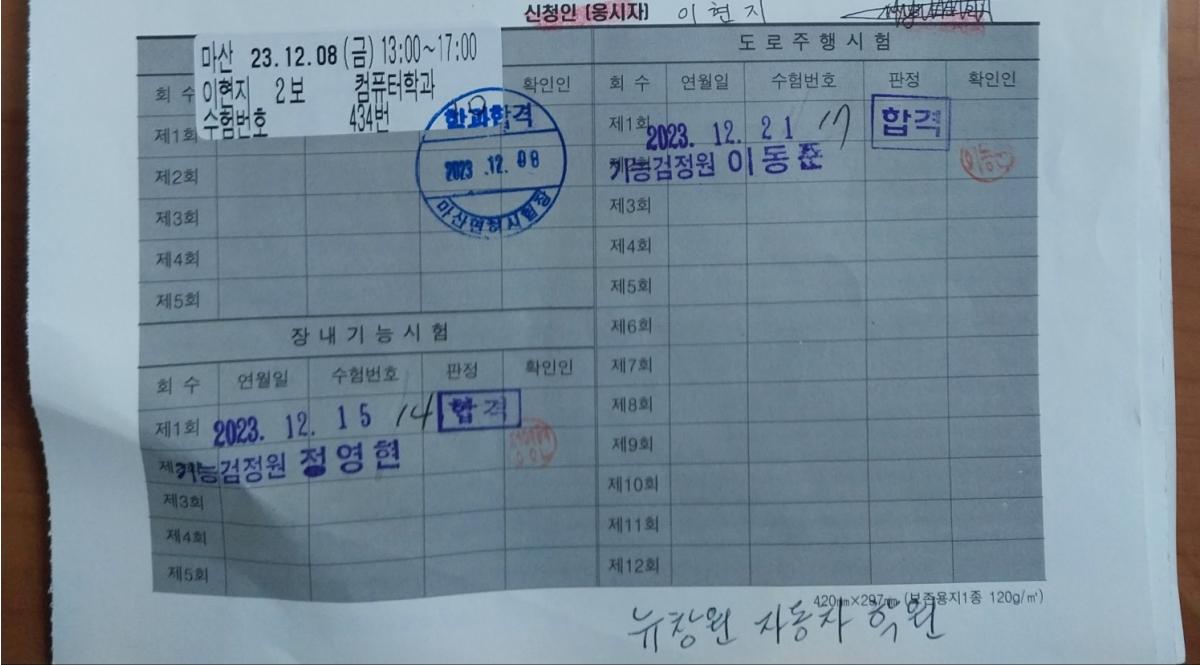 신청인 (응시자) 이현지
마산 23.12.08(금) 13:00~17:00
이현지 2보 컴퓨터학과
수험번호 434번
회 수 확인인
제1회
제2회
제3회
제4회
제5회
학과합격
2023.12.08
마산면허시험장
장내기능시험
회 수 연월일 수험번호 판정 확인인
제1회 2023. 12. 15 14 합격
기능검정원 정영현
제3회
제4회
제5회
도로주행시험
회 수 연월일 수험번호 판정 확인인
제1회 2023. 12. 21 17 합격
기능검정원 이동준
제3회
제4회
제5회
제6회
제7회
제8회
제9회
제10회
제11회
제12회
420㎜×297㎜ (보존용지1종 120g/㎡)
뉴창원 자동차 학원